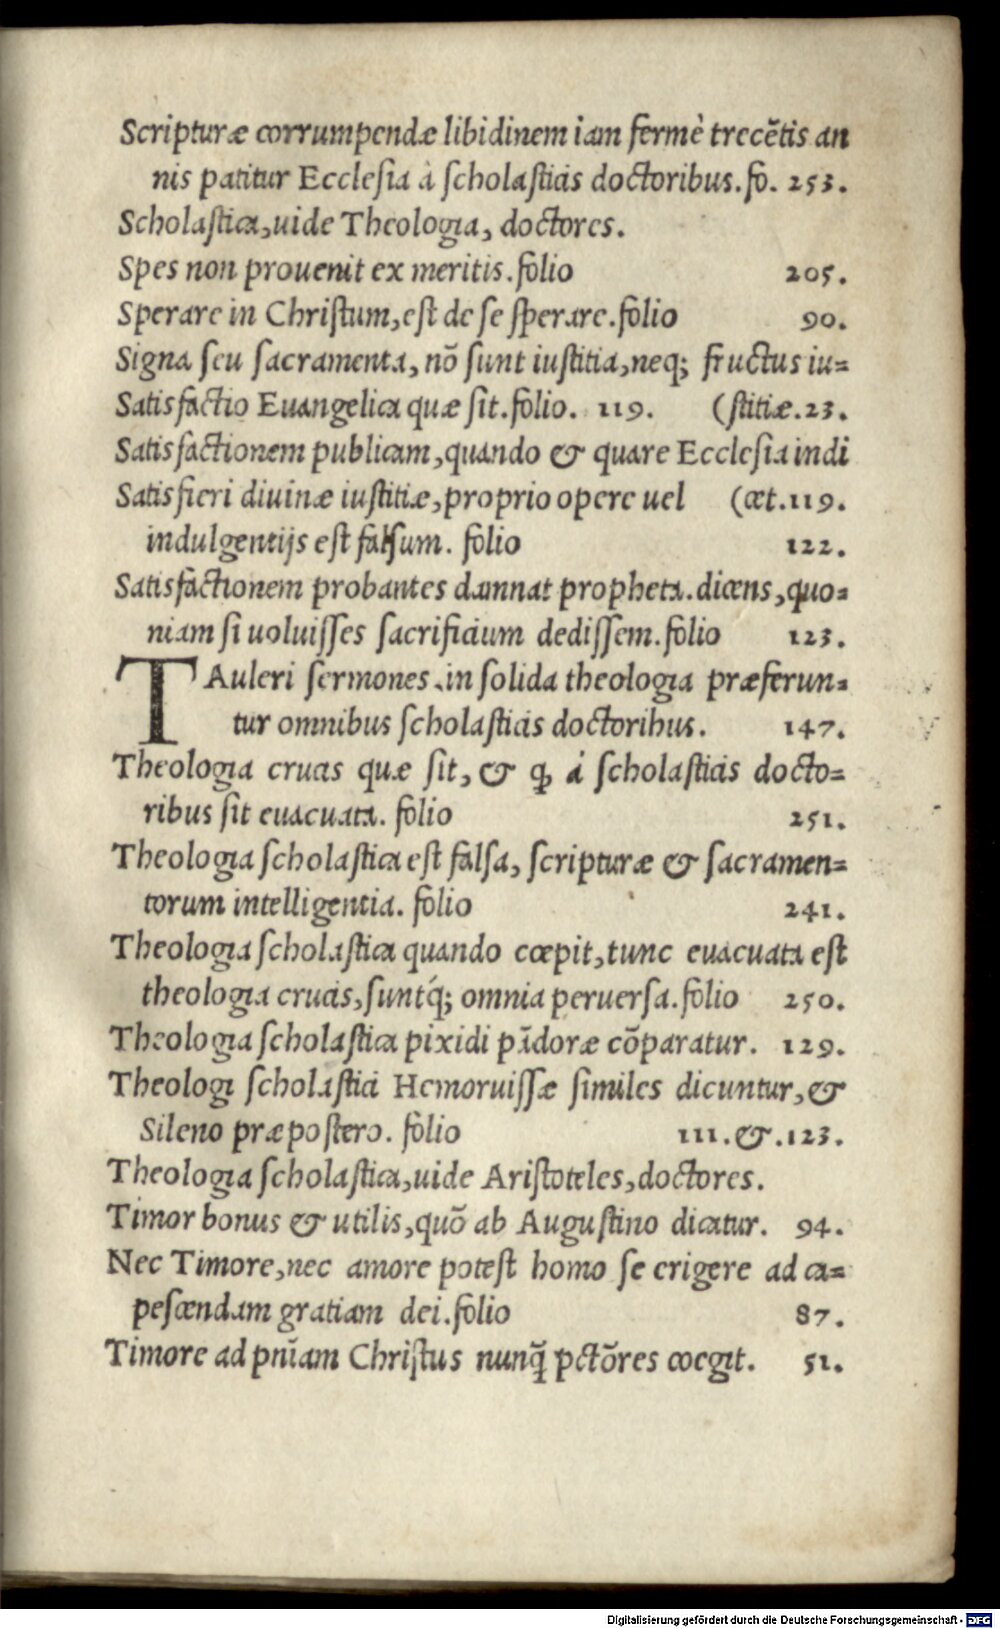 Scripturæ corrumpendæ libidinem iam fermè trecẽtis an
nis patitur Ecclesia à scholasticis doctoribus.fo. 253.
Scholastica,uide Theologia, doctores.
Spes non prouenit ex meritis.folio 205.
Sperare in Christum,est de se sperare.folio 90.
Signa seu sacramenta, nõ sunt iustitia,neq; fructus iu-
Satisfactio Euangelica quæ sit.folio. 119. (stitiæ.23.
Satisfactionem publicam,quando & quare Ecclesia indi
Satisfieri diuinæ iustitiæ,proprio opere uel (cet.119.
indulgentijs est falsum. folio 122.
Satisfactionem probantes damnat propheta.dicens,quo-
niam si uoluisses sacrificium dedissem.folio 123.
TAuleri sermones in solida theologia præferun-
tur omnibus scholasticis doctoribus. 147.
Theologia crucis quæ sit, & ꝙ à scholasticis docto-
ribus sit euacuata. folio 251.
Theologia scholastica est falsa, scripturæ & sacramen-
torum intelligentia. folio 241.
Theologia scholastica quando cœpit,tunc euacuata est
theologia crucis,suntq́; omnia peruersa.folio 250.
Theologia scholastica pixidi pãdoræ cõparatur. 129.
Theologi scholastici Hemoruissæ similes dicuntur,&
Sileno præpostero. folio 111.&.123.
Theologia scholastica,uide Aristoteles,doctores.
Timor bonus & utilis,quõ ab Augustino dicatur. 94.
Nec Timore,nec amore potest homo se erigere ad ca-
pescendam gratiam dei.folio 87.
Timore ad pnĩam Christus nunq̃ pctõres coegit. 51.
Digitalisierung gefördert durch die Deutsche Forschungsgemeinschaft - DFG